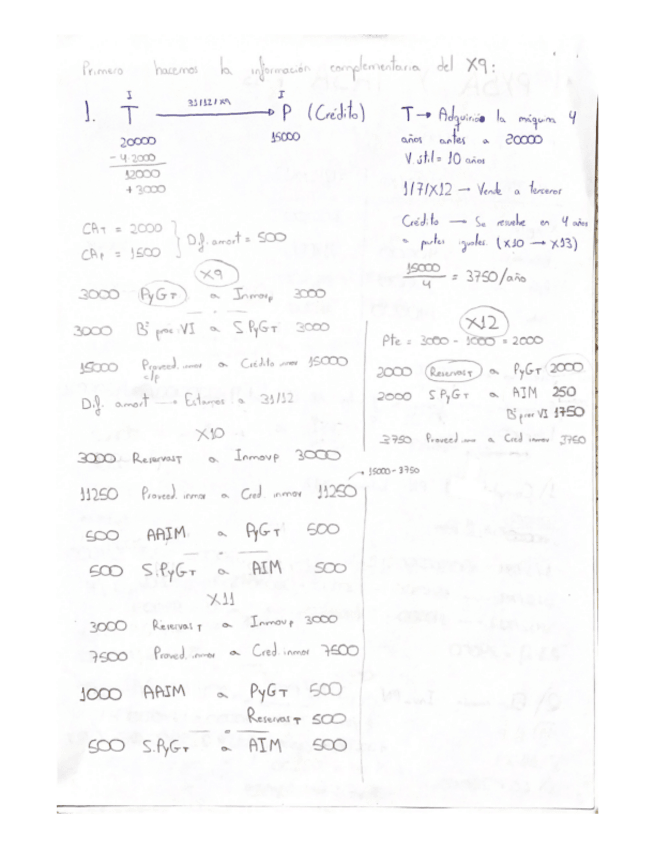 Primero hacemos la información complementaria del X9:
I 31/12/X9 I
1. T → P (Crédito)
20000 15000
- 4·2000
12000
+ 3000
T → Adquirió la máquina 4
años antes a 20000
V. útil = 10 años
1/7/X12 → Vende a terceros
Crédito → Se resuelve en 4 años
a partes iguales (X10 → X13)
15000
4 = 3750/año
CAT = 2000
CAP = 1500 } Dif. amort = 500
X9
3000 PyGT a Inmovp 3000
3000 Bº proc. VI a S PyGT 3000
15000 Proveed. inmov c/p a Crédito inmov 15000
Dif. amort → Estamos a 31/12
X10
3000 ReservasT a Inmovp 3000
15000 - 3750
11250 Proveed. inmov a Cred. inmov 11250
500 AAIM a PyGT 500
500 S.PyGT a AIM 500
X11
3000 ReservasT a Inmovp 3000
7500 Proveed. inmov a Cred. inmov 7500
1000 AAIM a PyGT 500
ReservasT 500
500 S.PyGT a AIM 500
X12
Pte = 3000 - 1000 = 2000
2000 ReservasT a PyGT 2000
2000 S PyGT a AIM 250
Bº proc VI 1750
3750 Proveed inmov a Cred inmov 3750